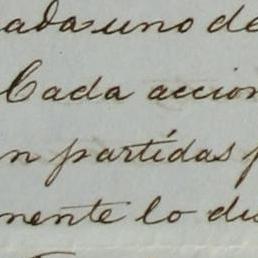 cada uno de
Cada accion
n partídas p
mente lo du